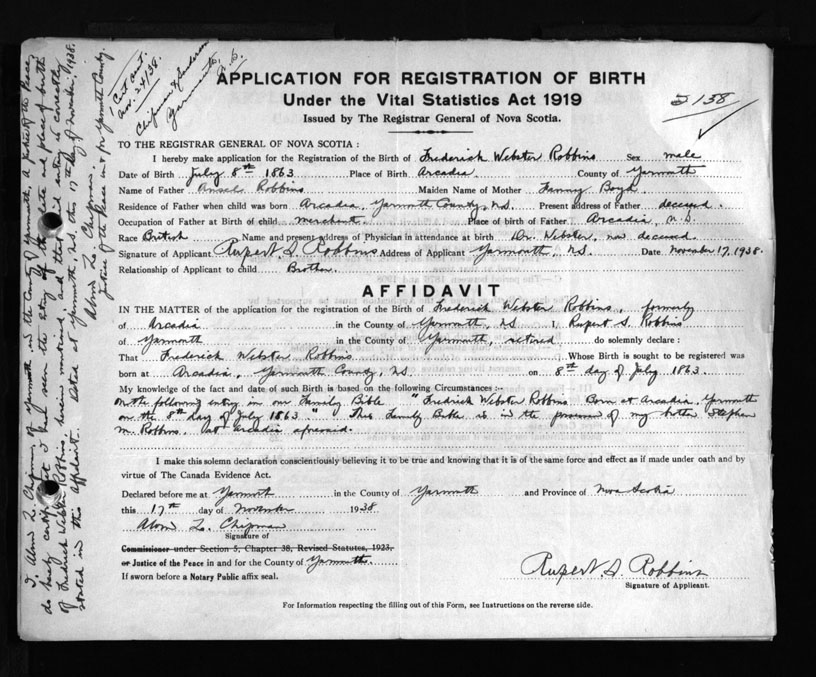 1 Cert aut.
Nov. 24/38.
Chipman & Sanderson
Yarmouth, N.S.
5138
APPLICATION FOR REGISTRATION OF BIRTH
Under the Vital Statistics Act 1919
Issued by The Registrar General of Nova Scotia.
TO THE REGISTRAR GENERAL OF NOVA SCOTIA:
I hereby make application for the Registration of the Birth of Frederick Webster Robbins Sex male
Date of Birth July 8th 1863 Place of Birth Arcadia County of Yarmouth
Name of Father Ansel Robbins Maiden Name of Mother Fanny Boyd
Residence of Father when child was born Arcadia, Yarmouth County, N.S. Present address of Father deceased.
Occupation of Father at Birth of child merchant Place of birth of Father Arcadia, N.S.
Race British Name and present address of Physician in attendance at birth Dr. Webster, now deceased.
Signature of Applicant Rupert S. Robbins Address of Applicant Yarmouth, N.S. Date November 17, 1938.
Relationship of Applicant to child Brother.
AFFIDAVIT
IN THE MATTER of the application for the registration of the Birth of Frederick Webster Robbins, formerly
of Arcadia in the County of Yarmouth, N.S. I, Rupert S. Robbins
of Yarmouth in the County of Yarmouth, retired do solemnly declare:
That Frederick Webster Robbins Whose Birth is sought to be registered was
born at Arcadia, Yarmouth County, N.S. on 8th day of July 1863.
My knowledge of the fact and date of such Birth is based on the following Circumstances:-
On the following entry in our Family Bible "Frederick Webster Robbins. Born at Arcadia, Yarmouth
on the 8th day of July 1863" This Family Bible is in the possession of my brother Stephen
M. Robbins, at Arcadia aforesaid.
I make this solemn declaration conscientiously believing it to be true and knowing that it is of the same force and effect as if made under oath and by
virtue of The Canada Evidence Act.
Declared before me at Yarmouth in the County of Yarmouth and Province of Nova Scotia
this 17th day of November 1938
L. Chipman
Signature of
Commissioner under Section 5, Chapter 38, Revised Statutes, 1923.
or Justice of the Peace in and for the County of Yarmouth.
If sworn before a Notary Public affix seal.
Rupert S. Robbins
Signature of Applicant.
For Information respecting the filling out of this Form, see Instructions on the reverse side.
I, L. Chipman, of Yarmouth in the County of Yarmouth, a Justice of the Peace,
do hereby certify that I have seen the entry of the date and place of birth
of Frederick Webster Robbins, herein mentioned, and that said entry is correctly
stated in this affidavit. Dated at Yarmouth, N.S. this 17th day of November, 1938.
L. Chipman.
Justice of the Peace in & for Yarmouth County.